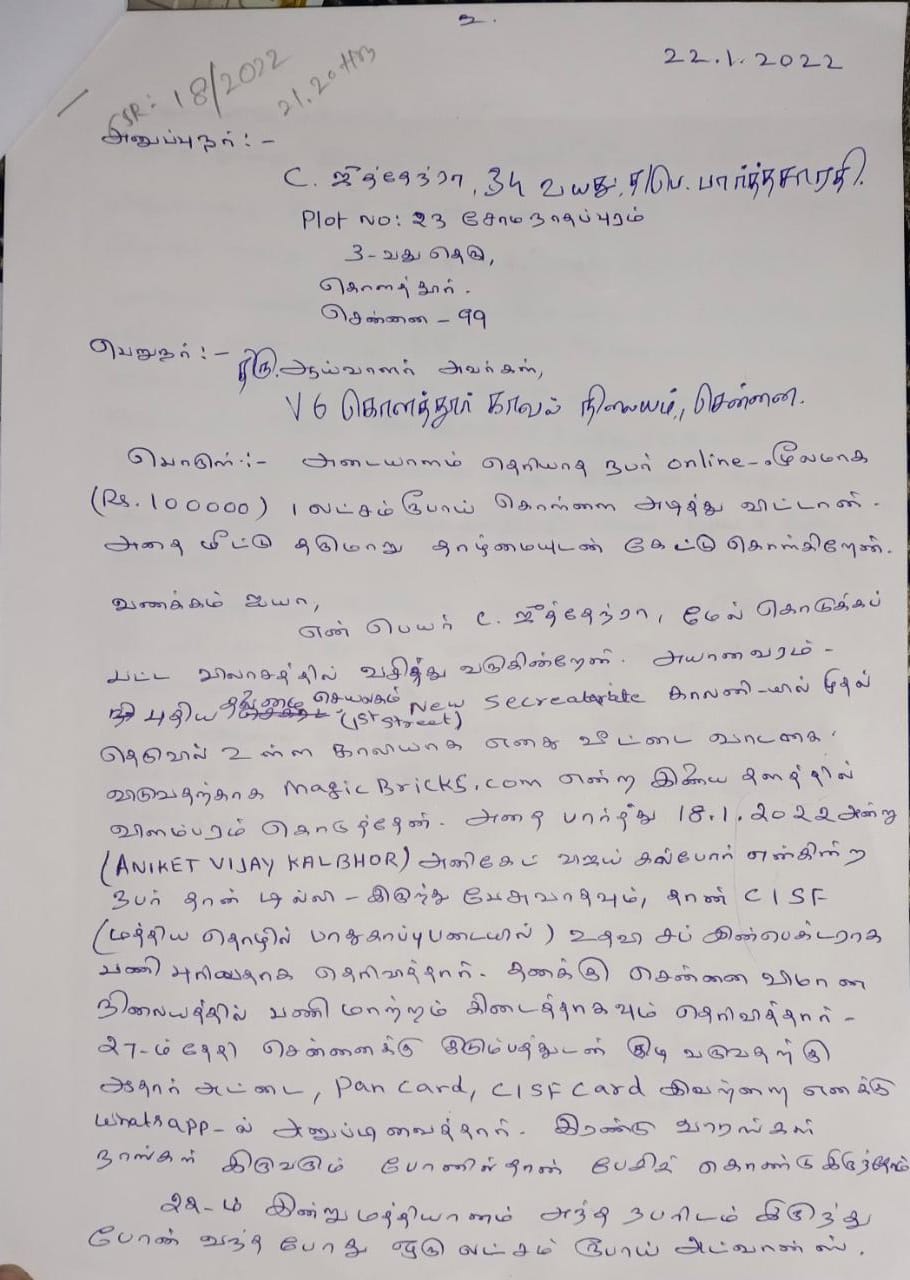 2.
22.1.2022
CSR: 18/2022
21.20 Hrs
அனுப்புநர் :-
C. ஜீத்தேந்ரா, 34 வயது, த/பெ. பார்த்தசாரதி.
Plot No: 23 சோமநாதப்புரம்
3-வது தெரு,
கொளத்தூர்.
சென்னை - 99
பெறுநர் :-
திரு. ஆய்வாளர் அவர்கள்,
V6 கொளத்தூர் காவல் நிலையம், சென்னை.
பொருள் :- அடையாளம் தெரியாத நபர் online-மூலமாக
(Rs. 100000) 1 லட்சம் ரூபாய் கொள்ளை அடித்து விட்டான்.
அதை மீட்டு தருமாறு தாழ்மையுடன் கேட்டு கொள்கிறேன்.
வணக்கம் ஐயா,
என் பெயர் C. ஜீத்தேந்ரா, மேல் கொடுக்கப்
பட்ட விலாசத்தில் வசித்து வருகின்றேன். அயானவரம் -
புதிய தலைமை செயலகம் New Secreaterate காலனி-யில் முதல்
(1st street)
தெருவில் உள்ள காலியாக எனது வீட்டை வாடகை
விடுவதற்காக MagicBricks.com என்ற இணைய தளத்தில்
விளம்பரம் கொடுத்தேன். அதை பார்த்து 18.1.2022 அன்று
(ANIKET VIJAY KALBHOR) அனிகேட் விஜய் கல்போர் என்கின்ற
நபர் தான் டில்லி - இருந்து பேசுவாதவும், தான் CISF
(மத்திய தொழில் பாதுகாப்புபடையில்) உதவி சப் இன்பெக்டராக
பணி புரிவதாக தெரிவித்தார். தனக்கு சென்னை விமான
நிலையத்தில் பணி மாற்றம் கிடைத்தாகவும் தெரிவித்தார் -
27-ம் தேதி சென்னைக்கு குடும்பத்துடன் குடி வருவதற்கு
ஆதார் அட்டை, Pan Card, CISF Card இவற்றை எனக்கு
Whatsapp-ல் அனுப்பிவைத்தார். இரண்டு வாரங்கள்
நாங்கள் இருவரும் போனில்தான் பேசிக் கொண்டு இருந்தோம்
22-ம் இன்று மத்தியானம் அந்த நபரிடம் இருந்து
போன் வந்த போது ஒரு லட்சம் ரூபாய் அட்வான்ஸ்.